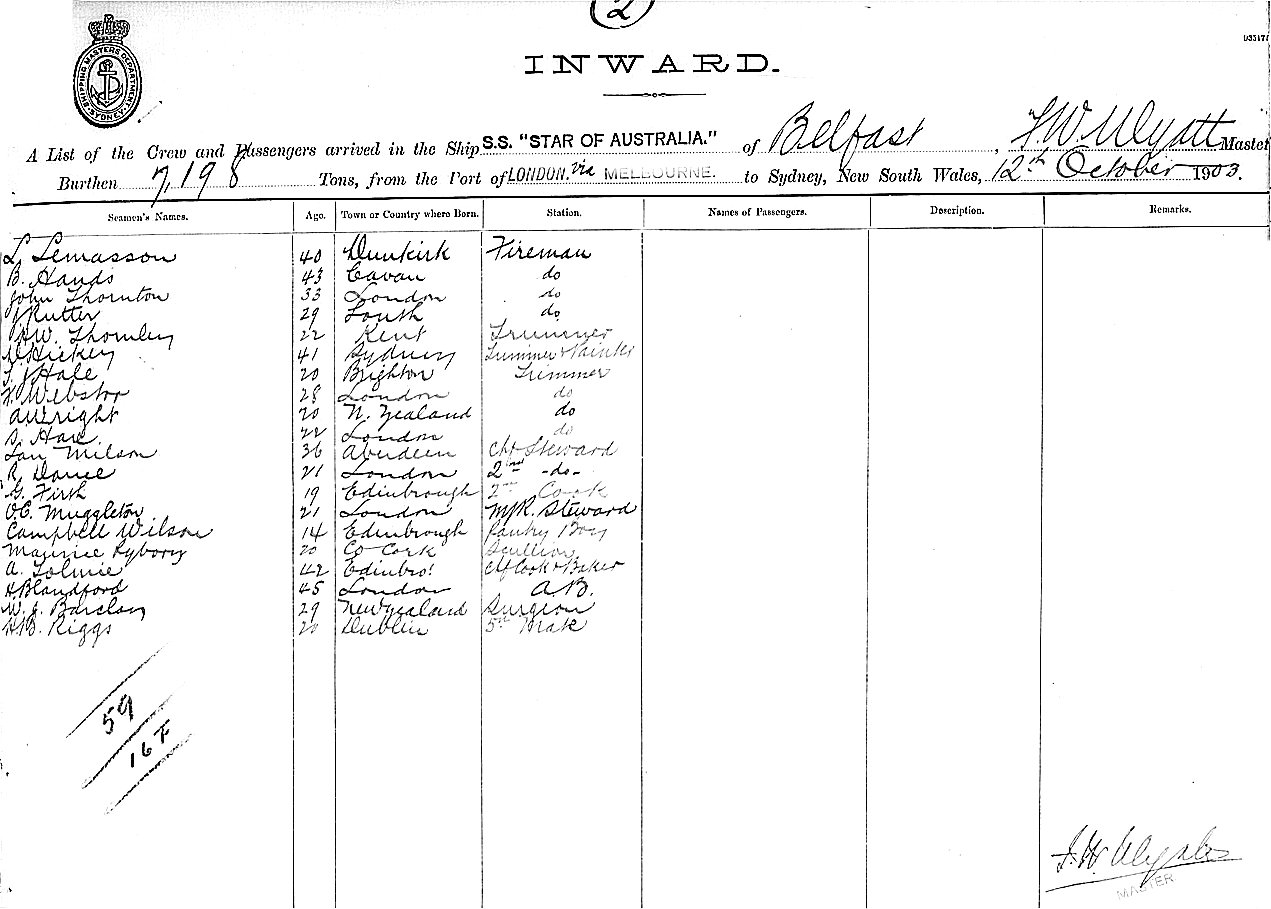 2
INWARD.
SHIPPING MASTERS DEPARTMENT SYDNEY
A List of the Crew and Passengers arrived in the Ship S.S. "STAR OF AUSTRALIA." of Belfast, F W Wyatt Master
Burthen 7,198 Tons, from the Port of LONDON. via MELBOURNE. to Sydney, New South Wales, 12th October 1903.
Seamen's Names. Age. Town or Country where Born. Station. Names of Passengers. Description. Remarks.
L. Lemasson 40 Dunkirk Fireman
B. Hands 43 Cavan do
John Thornton 33 London do
J Rutter 29 Louth do
HW. Thornley 22 Kent Trimmer
Hickey 41 Sydney Trimmer & Painter
T J Hale 20 Brighton Trimmer
F. Webster 28 London do
A Wright 20 N. Zealand do
S. Hare. 22 London do
Ian Milson 36 Aberdeen Chf Steward
R. Dance 21 London 2nd -do-
G. Firth 19 Edinbrough 2nd Cook
O.C. Muggleton 21 London M/R. Steward
Campbell Wilson 14 Edinbrough Pantry Boy
Maurice 20 Co Cork Scullion
A. Tolmie 42 Edinbro! Chf Cook & Baker
H Blandford 45 London A.B.
W. J. Barclay 29 New Zealand Surgeon
H.B. Riggs 20 Dublin 5th Mate
59
16 F
F. W. Wyatt
MASTER